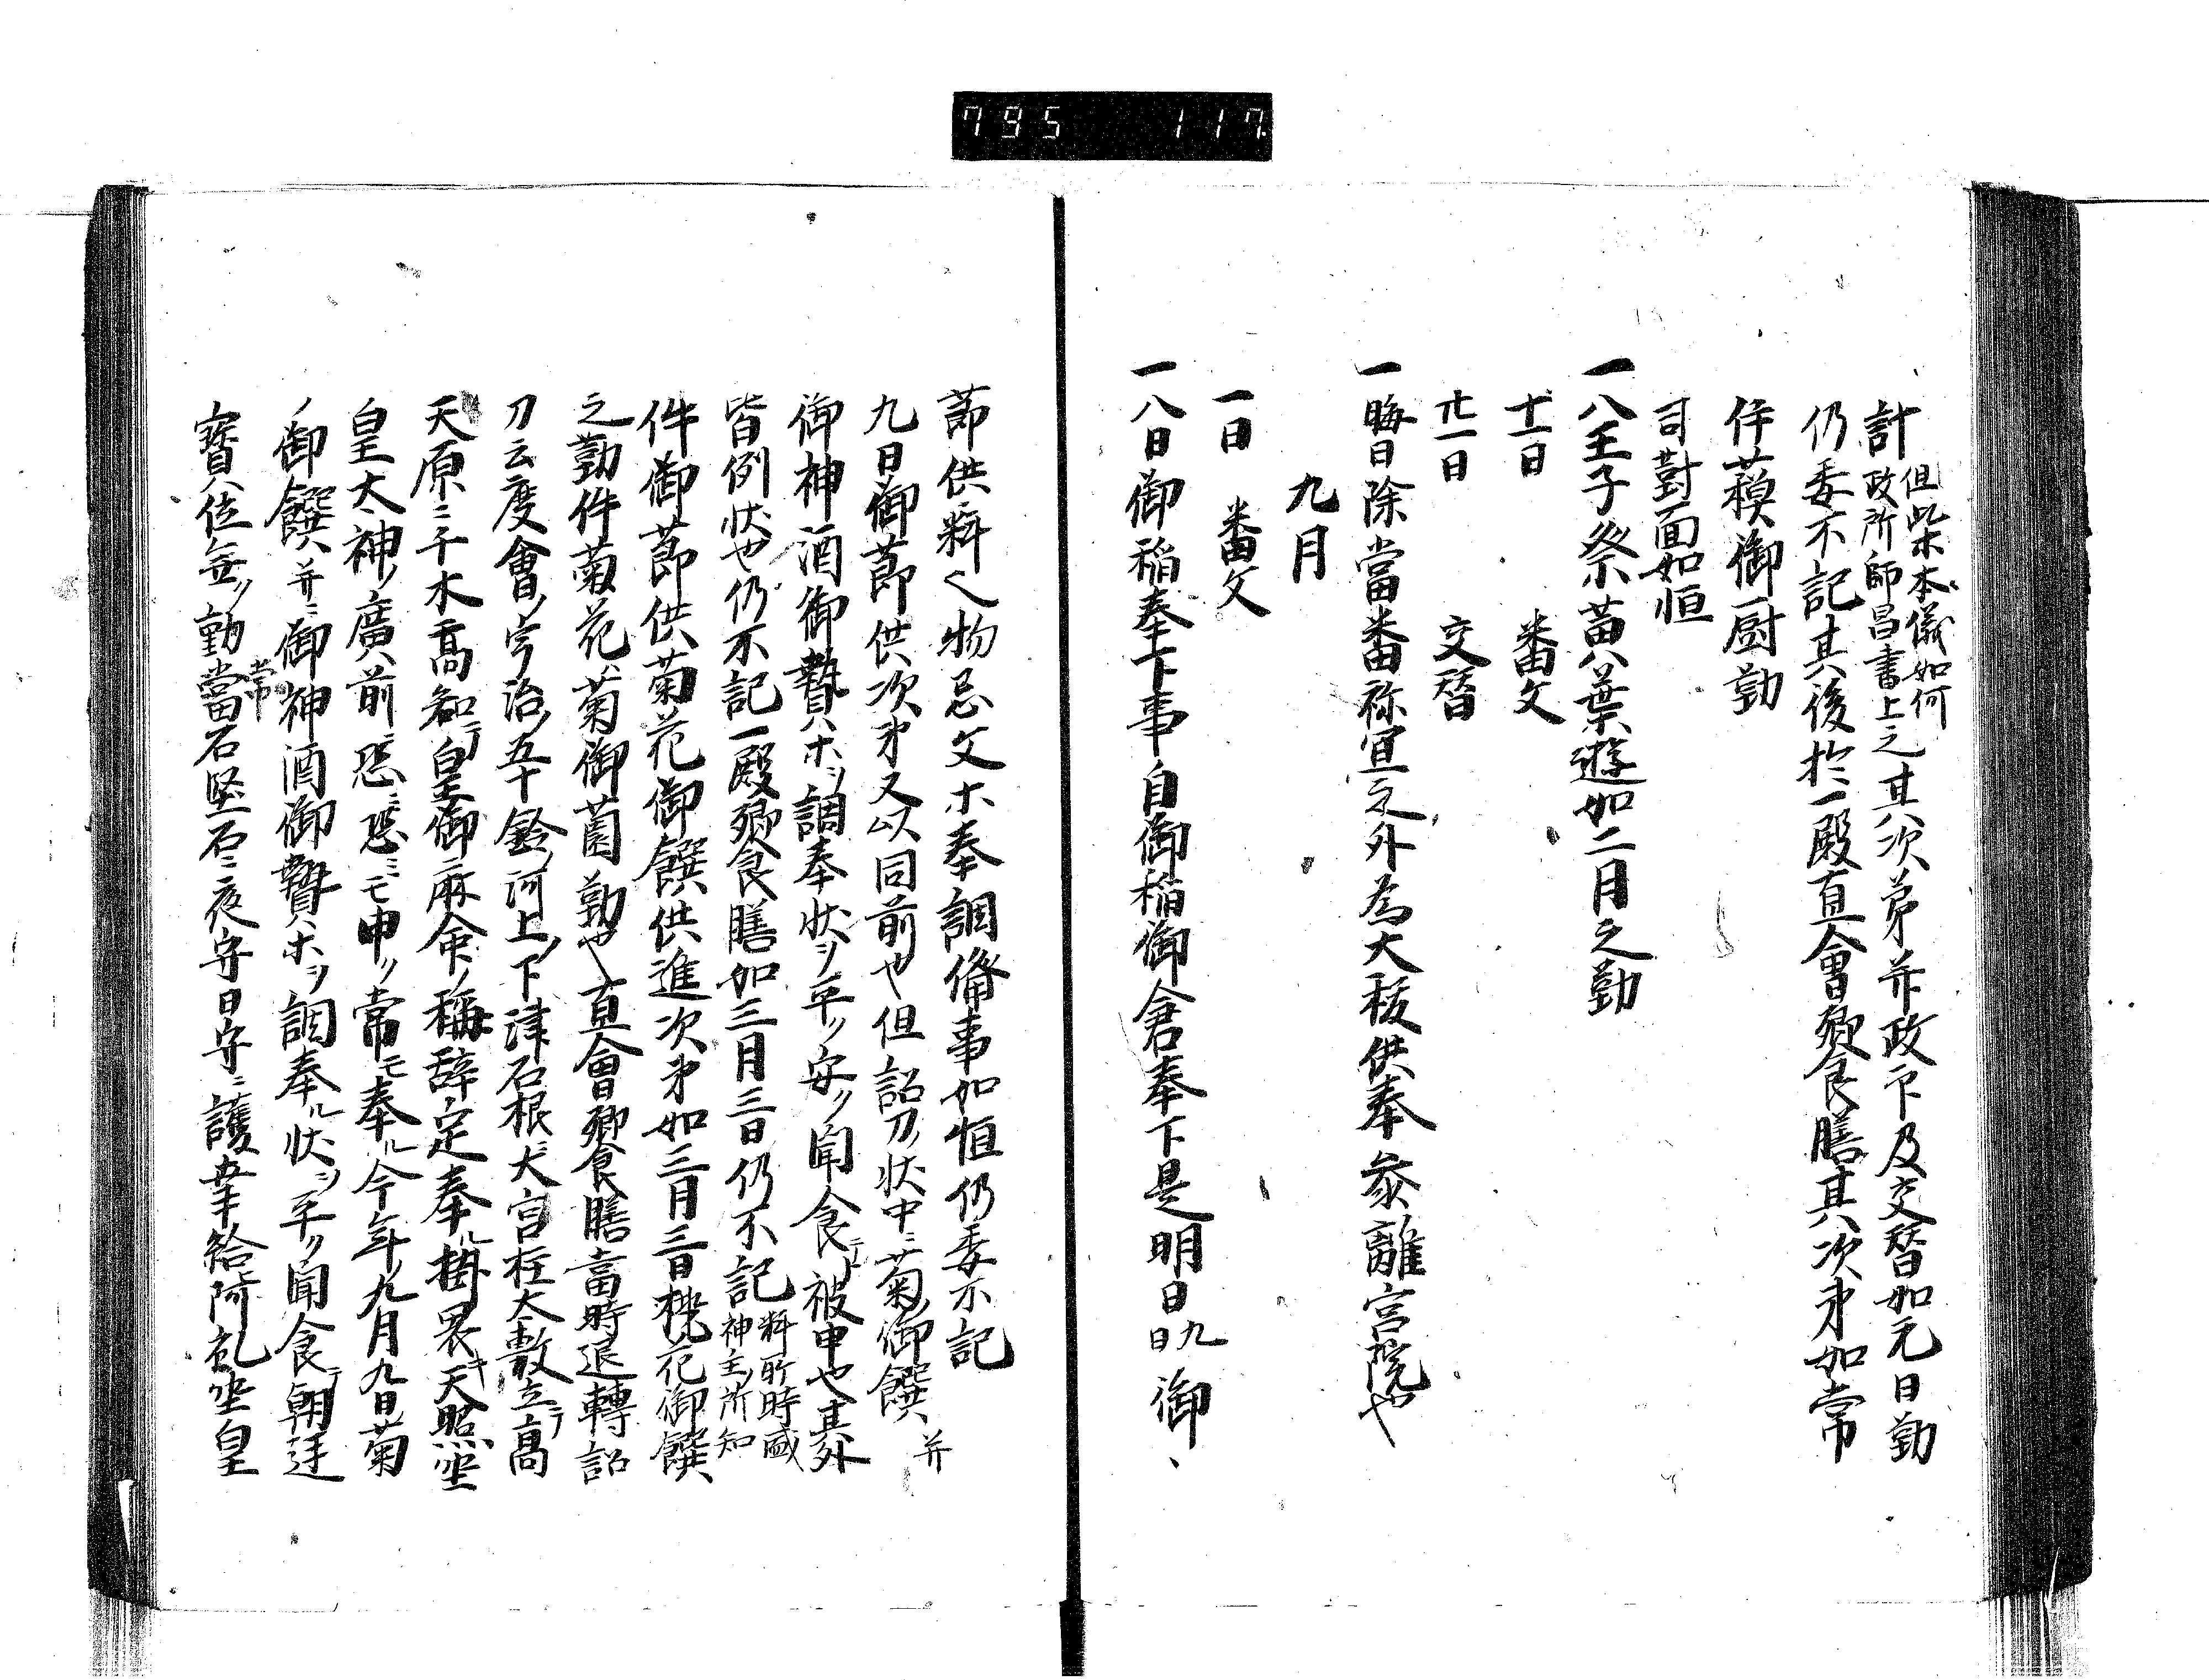 795 117
計但此等本儀如何政所師昌書上之其次第并政印及交替如元日勤
仍委不記其後於一殿直會饗食膳其次第如常
件蘋御厨勤
司對面如恒
一八王子祭黄葉遊如二月之勤
十一日 番文
廿一日 交替
一晦日除當番祢宜之外為大祓供奉叅離宮院也
九月
一日 番文
一八日御稲奉下事自御稲御倉奉下是明日九日御
節供料也物忌父ホ奉調備事如恒仍委不記
九日御節供次第又以同前也但詔刀ノ状中ニ菊ノ御饌并
御神酒御贄ホヲ調奉状ヲ平ク安ク聞食テト被申也其外
皆例状也仍不記一殿饗食膳如三月三日仍不記料所時盛神主ノ所知
件御節供菊花御饌供進次第如三月三日桃花御饌
之勤件菊花ハ菊御薗勤也直會饗食膳當時退轉詔
刀云度會ノ宇治ノ五十鈴ノ河上ノ下津石根ニ大宮柱太敷立テ高
天原ニ千木高知テ皇御麻命ノ稱辞定奉ル掛畏キ天照坐
皇太神ノ廣前ニ恐ミ恐ミモ申ク常モ奉ル今年ノ九月九日菊
ノ御饌并ニ御神酒御贄ホヲ調奉ル状ヲ平ク聞食テ朝廷
寶位無ノ動常石堅石ニ夜守日守ニ護幸給阿礼坐皇